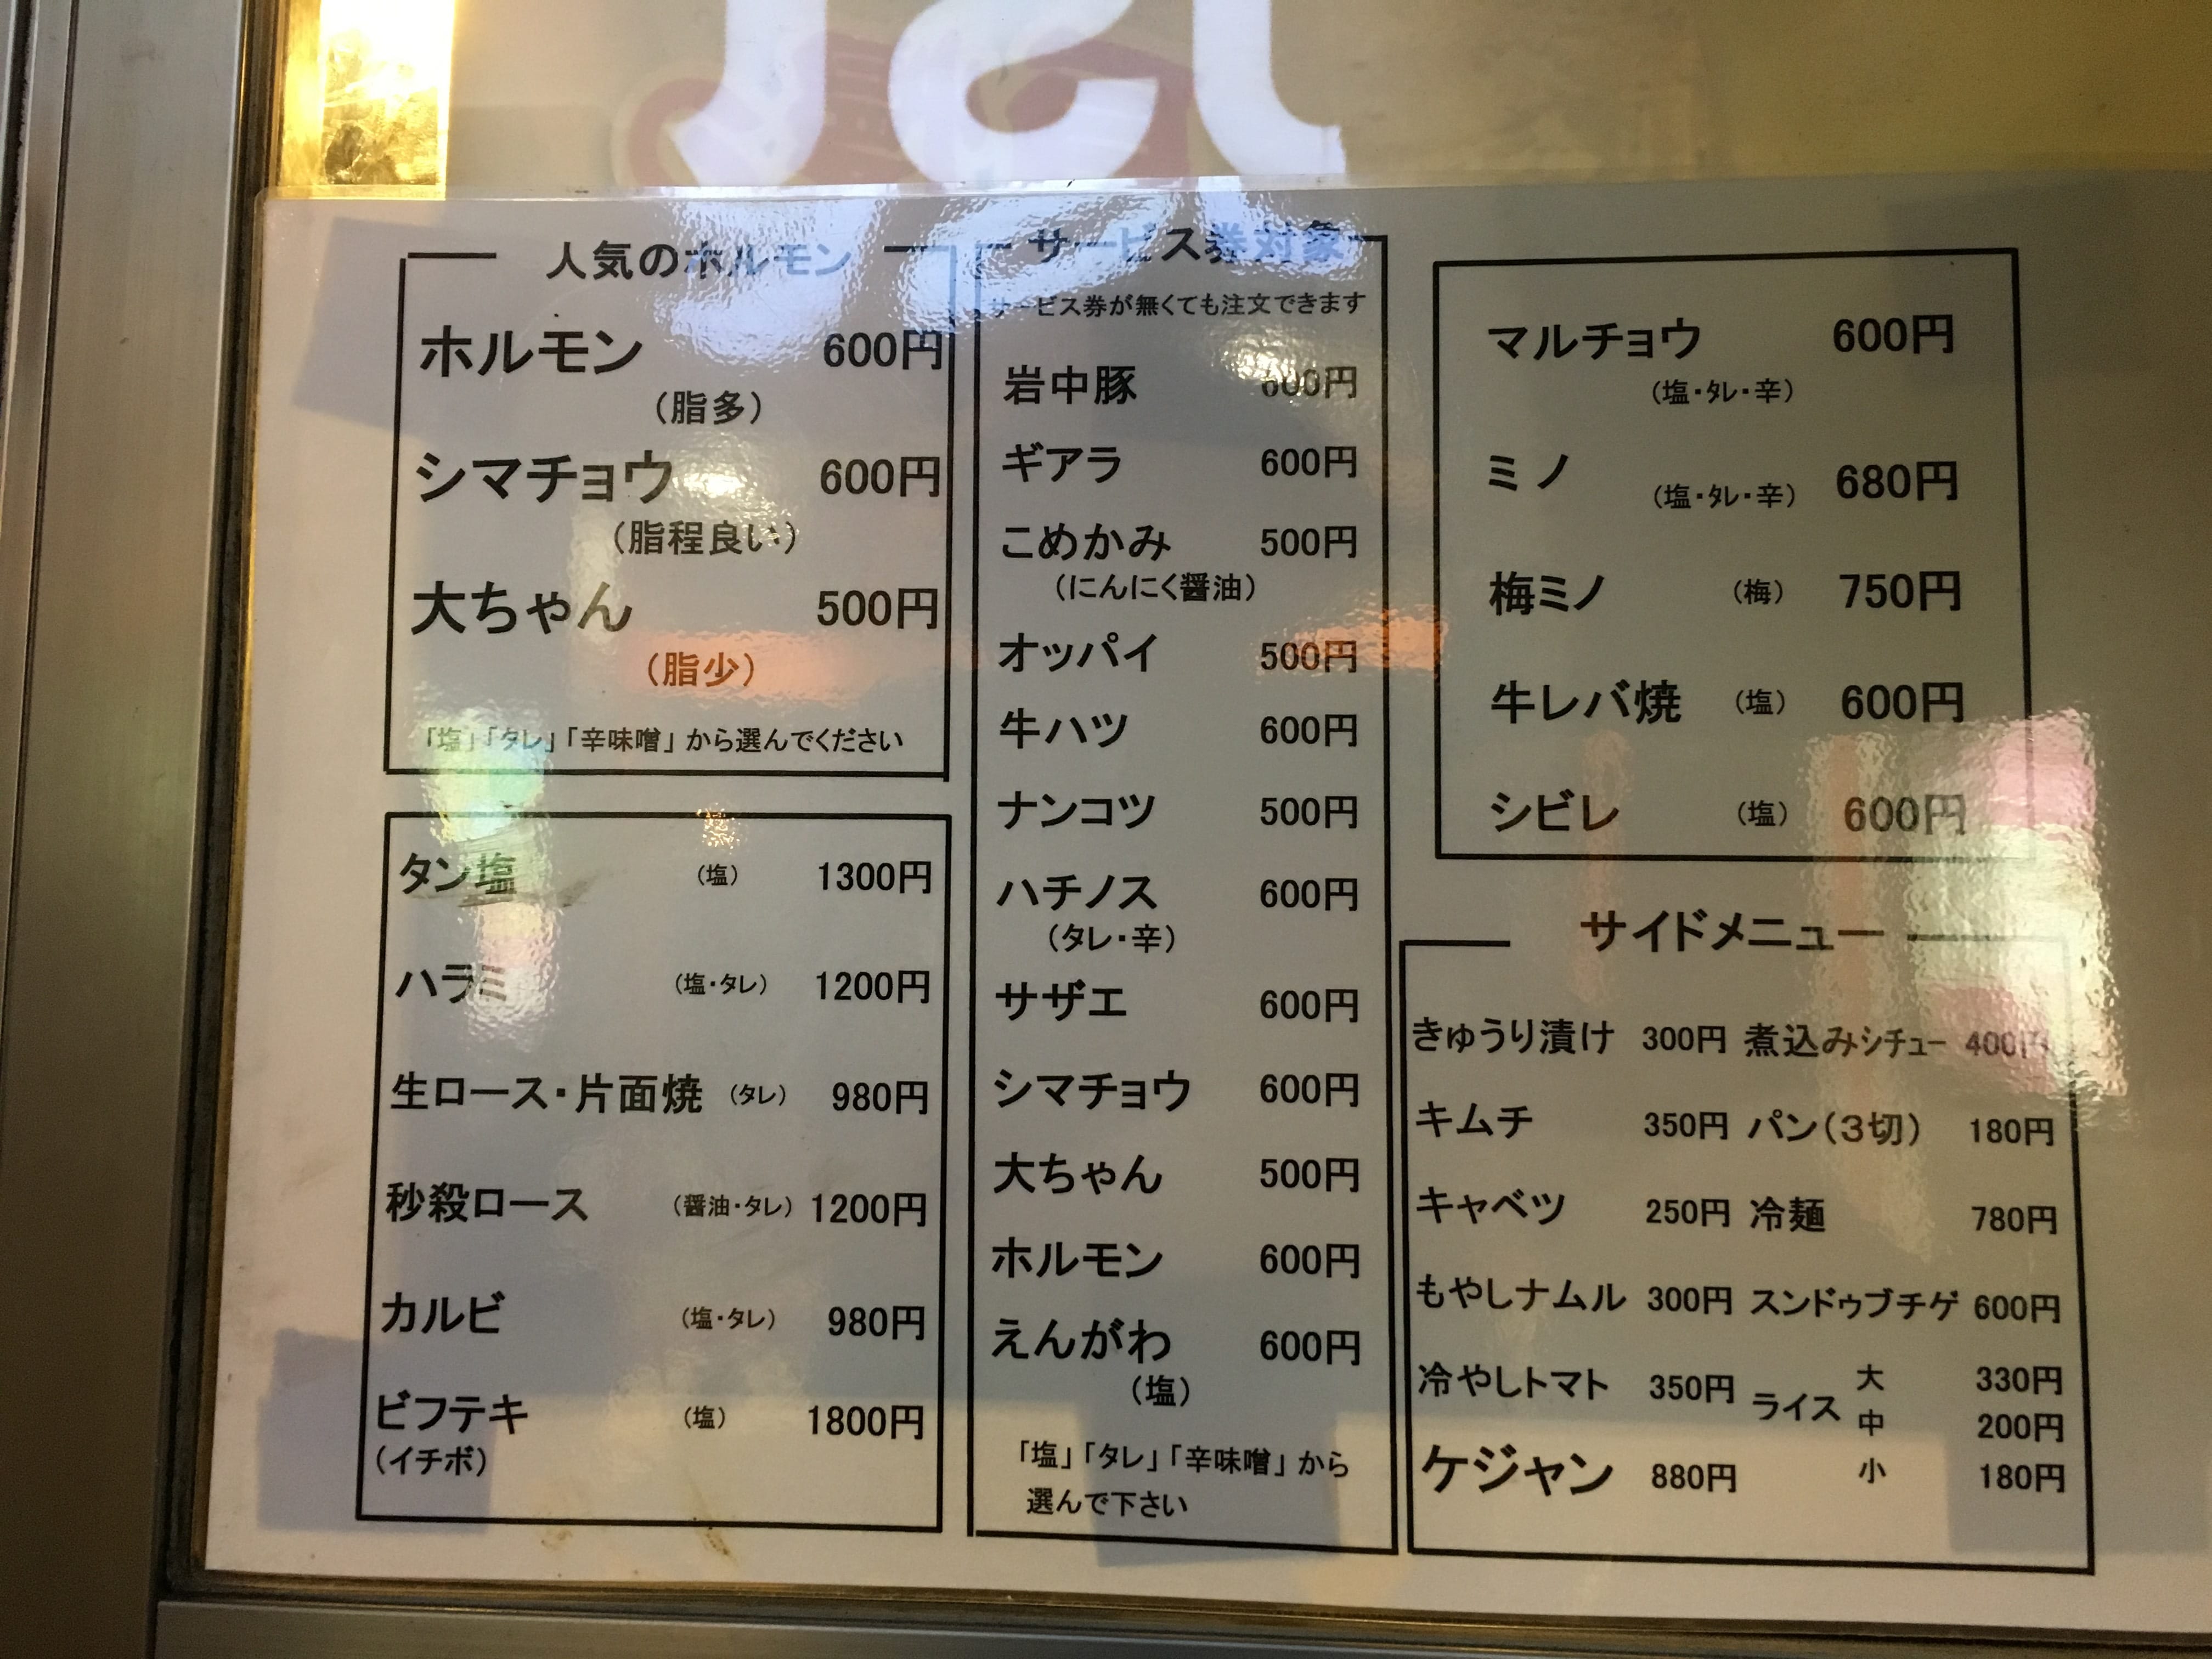 人気のホルモン
ホルモン 600円
（脂多）
シマチョウ 600円
（脂程良い）
大ちゃん 500円
（脂少）
「塩」「タレ」「辛味噌」から選んでください
タン塩 （塩） 1300円
ハラミ （塩・タレ） 1200円
生ロース・片面焼 （タレ） 980円
秒殺ロース （醤油・タレ） 1200円
カルビ （塩・タレ） 980円
ビフテキ （塩） 1800円
（イチボ）
サービス券対象
サービス券が無くても注文できます
岩中豚 600円
ギアラ 600円
こめかみ 500円
（にんにく醤油）
オッパイ 500円
牛ハツ 600円
ナンコツ 500円
ハチノス 600円
（タレ・辛）
サザエ 600円
シマチョウ 600円
大ちゃん 500円
ホルモン 600円
えんがわ 600円
（塩）
「塩」「タレ」「辛味噌」から
選んで下さい
マルチョウ 600円
（塩・タレ・辛）
ミノ （塩・タレ・辛） 680円
梅ミノ （梅） 750円
牛レバ焼 （塩） 600円
シビレ （塩） 600円
サイドメニュー
きゅうり漬け 300円 煮込みシチュー 400円
キムチ 350円 パン（3切） 180円
キャベツ 250円 冷麺 780円
もやしナムル 300円 スンドゥブチゲ 600円
冷やしトマト 350円 ライス 大 330円
中 200円
ケジャン 880円 小 180円